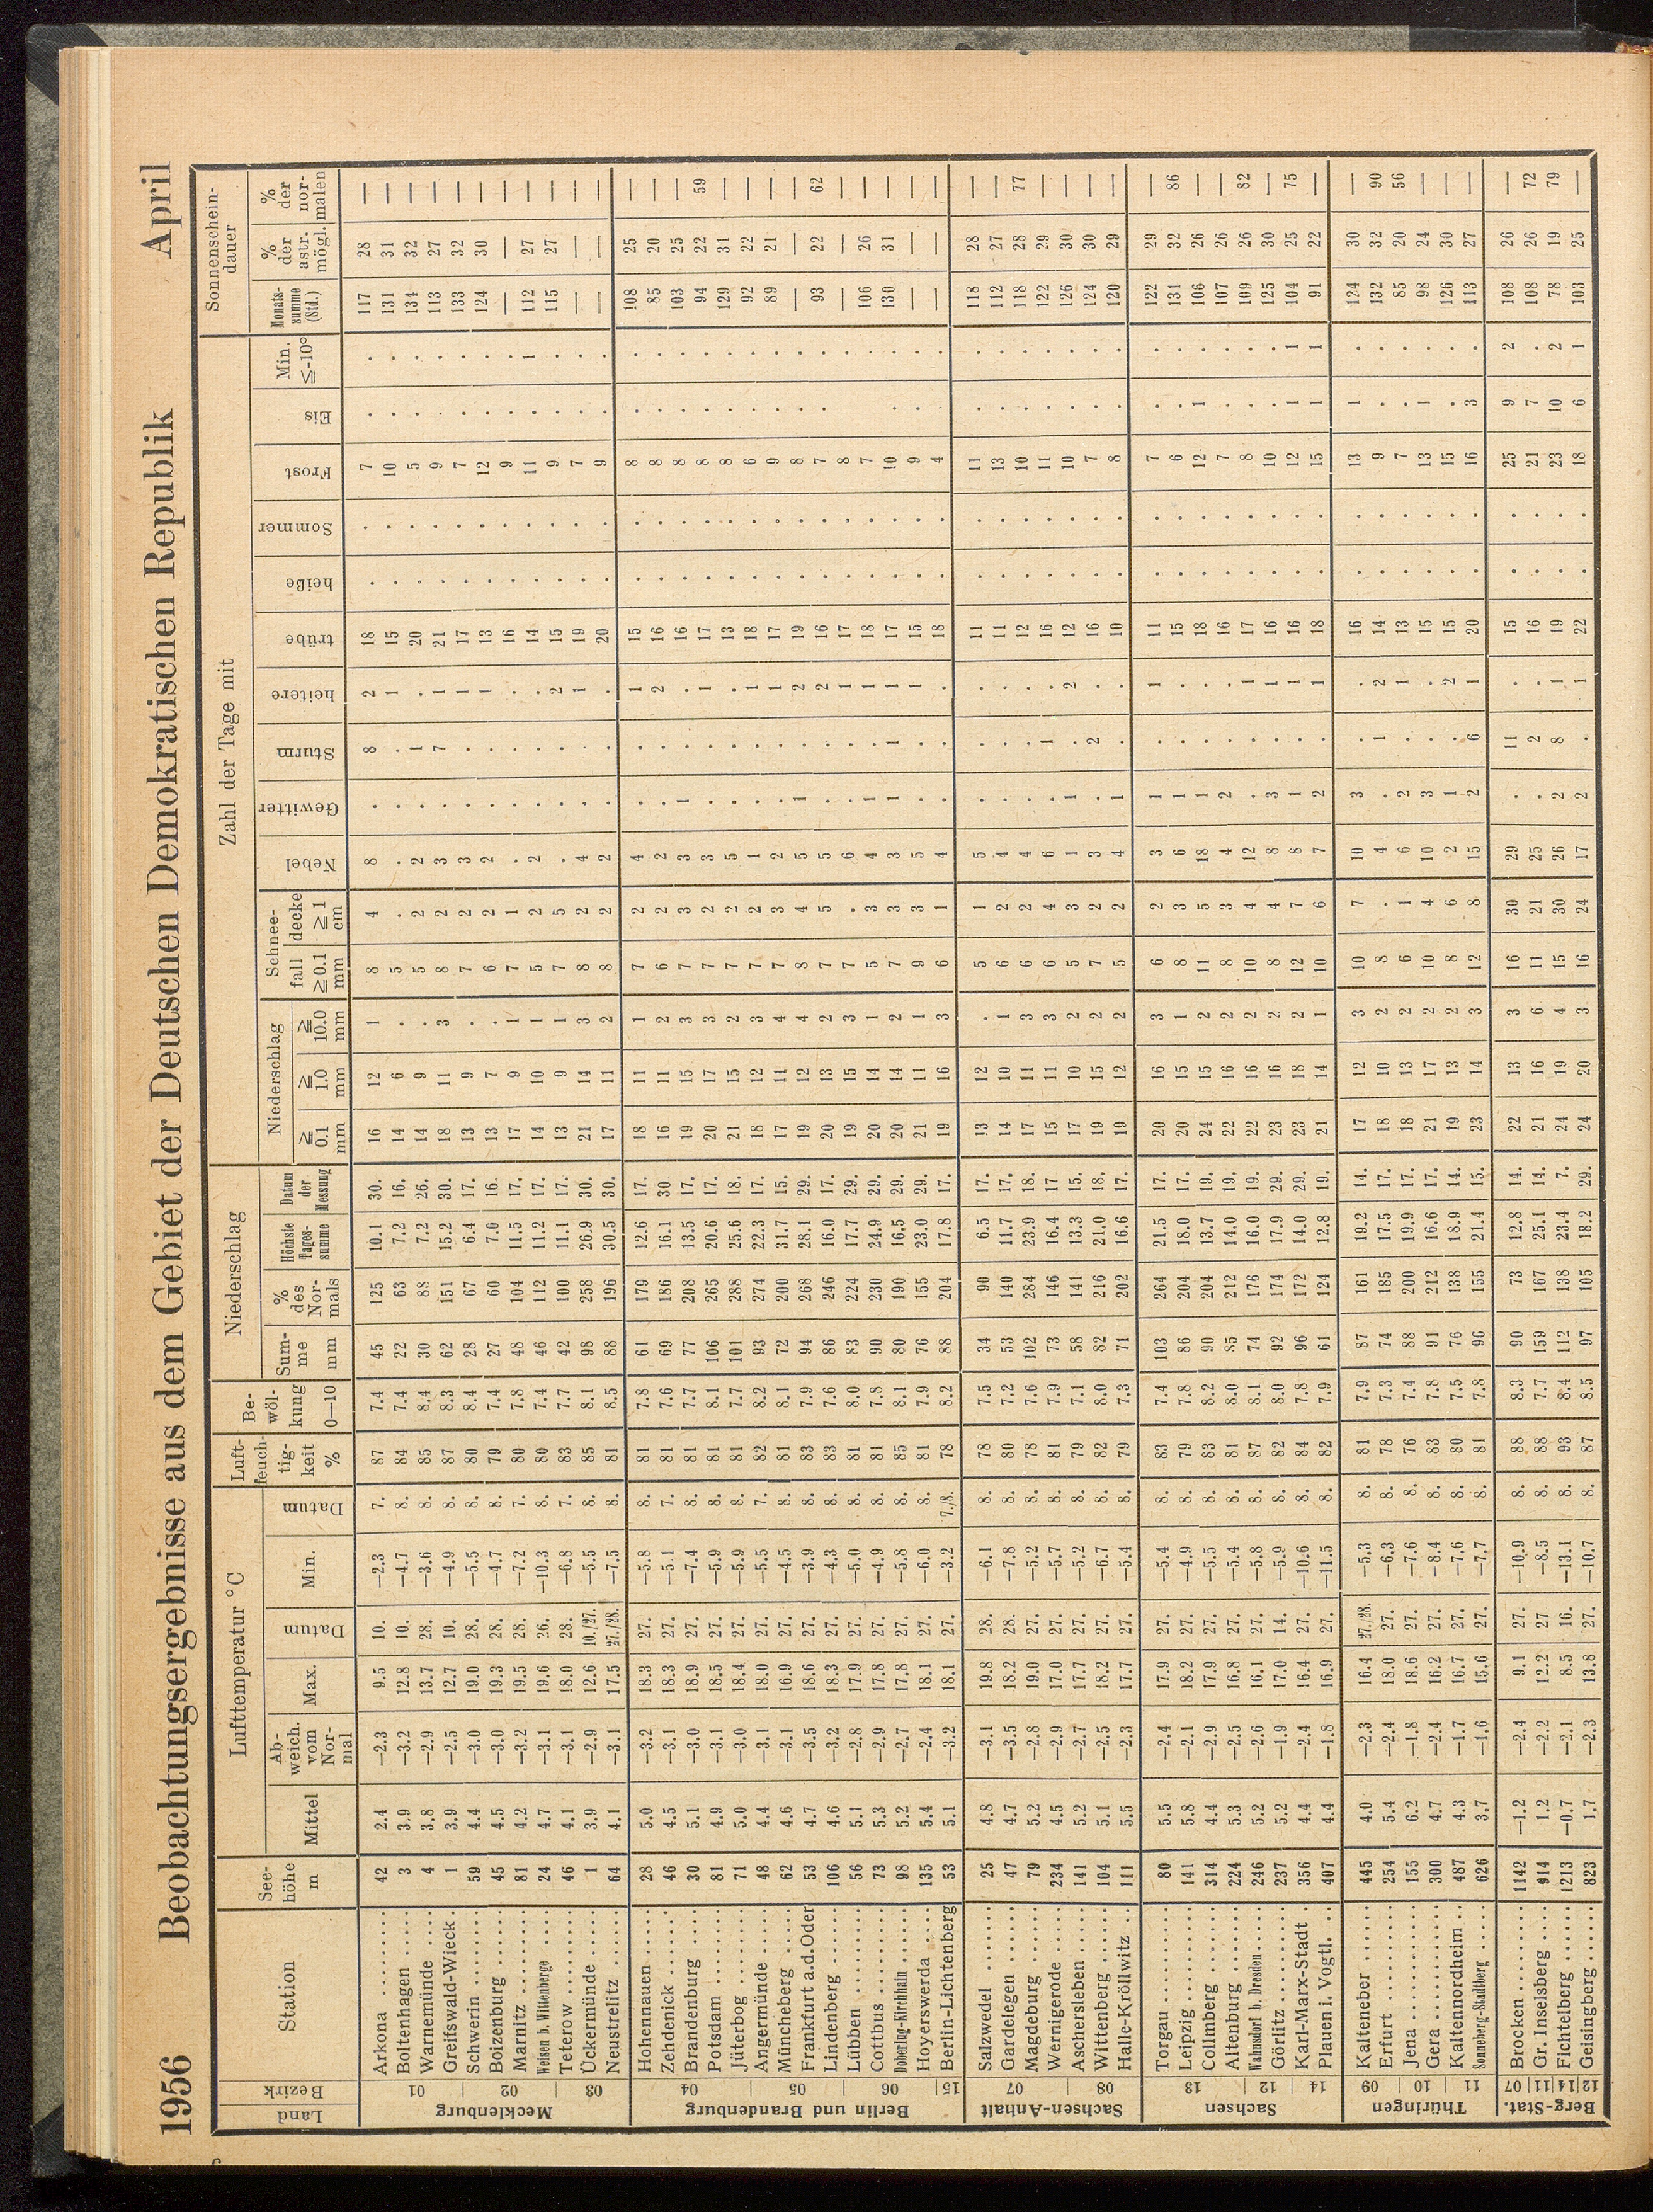 1956 Beobachtungsergebnisse aus dem Gebiet der Deutschen Demokratischen Republik April
Land Bezirk Station See-höhe m Lufttemperatur °C Luft-feuch-tig-keit % Be-wöl-kung 0—10 Niederschlag Zahl der Tage mit Sonnenschein-dauer
Mittel Ab-weich. vom Nor-mal Max. Datum Min. Datum Sum-me mm % des Nor-mals Höchste Tages-summe Datum der Messung Niederschlag ≧ 0.1 mm ≧ 1.0 mm ≧ 10.0 mm Schnee- fall ≧0.1 mm decke ≧ 1 cm Nebel Gewitter Sturm heitere trübe heiße Sommer Frost Eis Min. ≦-10° Monats-summe (Std.) % der astr. mögl. % der nor-malen
Mecklenburg 01 02 03
Arkona ........ 42 2.4 —2.3 9.5 10. —2.3 7. 87 7.4 45 125 10.1 30. 16 12 1 8 4 8 . 8 2 18 . . 7 . . 117 28 —
Boltenhagen ..... 3 3.9 —3.2 12.8 10. —4.7 8. 84 7.4 22 63 7.2 16. 14 6 . 5 . . . . 1 15 . . 10 . . 131 31 —
Warnemünde .... 4 3.8 —2.9 13.7 28. —3.6 8. 85 8.4 30 88 7.2 26. 14 9 . 5 2 2 . 1 . 20 . . 5 . . 134 32 —
Greifswald-Wieck . 1 3.9 —2.5 12.7 10. —4.9 8. 87 8.3 62 151 15.2 30. 18 11 3 8 2 3 . 7 1 21 . . 9 . . 113 27 —
Schwerin ........ 59 4.4 —3.0 19.0 28. —5.5 8. 80 8.4 28 67 6.4 17. 13 9 . 7 2 3 . . 1 17 . . 7 . . 133 32 —
Boizenburg ...... 45 4.5 —3.0 19.3 28. —4.7 8. 79 7.4 27 60 7.0 16. 13 7 . 6 2 2 . . 1 13 . . 12 . . 124 30 —
Marnitz ........ 81 4.2 —3.2 19.5 28. —7.2 7. 80 7.8 48 104 11.5 17. 17 9 1 7 1 . . . . 16 . . 9 . . — — —
Weisen b. Wittenberge .... 24 4.7 —3.1 19.6 26. —10.3 8. 80 7.4 46 112 11.2 17. 14 10 1 5 2 2 . . . 14 . . 11 . 1 112 27 —
Teterow ......... 46 4.1 —3.1 18.0 28. —6.8 7. 83 7.7 42 100 11.1 17. 13 9 1 7 5 . . . 2 15 . . 9 . . 115 27 —
Ückermünde ..... 1 3.9 —2.9 12.6 10./27. —5.5 8. 85 8.1 98 258 26.9 30. 21 14 3 8 2 4 . . 1 19 . . 7 . . — — —
Neustrelitz ...... 64 4.1 —3.1 17.5 27./28. —7.5 8. 81 8.5 88 196 30.5 30. 17 11 2 8 2 2 . . . 20 . . 9 . . — — —
Berlin und Brandenburg 04 05 06 15
Hohennauen ..... 28 5.0 —3.2 18.3 27. —5.8 8. 81 7.8 61 179 12.6 17. 18 11 1 7 2 4 . . 1 15 . . 8 . . 108 25 —
Zehdenick ....... 46 4.5 —3.1 18.3 27. —5.1 7. 81 7.6 69 186 16.1 30. 16 11 2 6 2 2 . . 2 16 . . 8 . . 85 20 —
Brandenburg ..... 30 5.1 —3.0 18.9 27. —7.4 8. 81 7.7 77 208 13.5 17. 19 15 3 7 3 3 1 . . 16 . . 8 . . 103 25 —
Potsdam ........ 81 4.9 —3.1 18.5 27. —5.9 8. 81 8.1 106 265 20.6 17. 20 17 3 7 2 3 . . 1 17 . . 8 . . 94 22 59
Jüterbog ........ 71 5.0 —3.0 18.4 27. —5.9 8. 81 7.7 101 288 25.6 18. 21 15 2 7 2 5 . . . 13 . . 8 . . 129 31 —
Angermünde ..... 48 4.4 —3.1 18.0 27. —5.5 7. 82 8.2 93 274 22.3 17. 18 12 3 7 2 1 . . 1 18 . . 6 . . 92 22 —
Müncheberg ..... 62 4.6 —3.1 16.9 27. —4.5 8. 81 8.1 72 200 31.7 15. 17 11 4 7 3 2 . . 1 17 . . 9 . . 89 21 —
Frankfurt a.d.Oder 53 4.7 —3.5 18.6 27. —3.9 8. 83 7.9 94 268 28.1 29. 19 12 4 8 4 5 1 . 2 19 . . 8 . . — — —
Lindenberg ...... 106 4.6 —3.2 18.3 27. —4.3 8. 83 7.6 86 246 16.0 17. 20 13 2 7 5 5 . . 2 16 . . 7 . . 93 22 62
Lübben ......... 56 5.1 —2.8 17.9 27. —5.0 8. 81 8.0 83 224 17.7 29. 19 15 3 7 . 6 . . 1 17 . . 8 . — — —
Cottbus ......... 73 5.3 —2.9 17.8 27. —4.9 8. 81 7.8 90 230 24.9 29. 20 14 1 5 3 4 1 . 1 18 . . 7 . . 106 26 —
Doberlug-Kirchhain ...... 98 5.2 —2.7 17.8 27. —5.8 8. 85 8.1 80 190 16.5 29. 20 14 2 7 3 3 1 1 1 17 . . 10 . . 130 31 —
Hoyerswerda ..... 135 5.4 —2.4 18.1 27. —6.0 8. 81 7.9 76 155 23.0 29. 21 11 1 9 3 5 . . 1 15 . . 9 . . — — —
Berlin-Lichtenberg 53 5.1 —3.2 18.1 27. —3.2 7./8. 78 8.2 88 204 17.8 17. 19 16 3 6 1 4 . . . 18 . . 4 . . — — —
Sachsen-Anhalt 07 08
Salzwedel ....... 25 4.8 —3.1 19.8 28. —6.1 8. 78 7.5 34 90 6.5 17. 13 12 . 5 1 5 . . . 11 . . 11 . . 118 28 —
Gardelegen ...... 47 4.7 —3.5 18.2 28. —7.8 8. 80 7.2 53 140 11.7 17. 14 10 1 6 2 4 . . . 11 . . 13 . . 112 27 —
Magdeburg ...... 79 5.2 —2.8 19.0 27. —5.2 8. 78 7.6 102 284 23.9 18. 17 11 3 6 2 4 . . . 12 . . 10 . . 118 28 77
Wernigerode .... 234 4.5 —2.9 17.0 27. —5.7 8. 81 7.9 73 146 16.4 17 15 11 3 6 4 6 . 1 . 16 . . 11 . . 122 29 —
Aschersleben .... 141 5.2 —2.7 17.7 27. —5.2 8. 79 7.1 58 141 13.3 15. 17 10 2 5 3 1 1 . 2 12 . . 10 . . 126 30 —
Wittenberg ...... 104 5.1 —2.5 18.2 27. —6.7 8. 82 8.0 82 216 21.0 18. 19 15 2 7 2 3 . 2 . 16 . . 7 . . 124 30 —
Halle-Kröllwitz .. 111 5.5 —2.3 17.7 27. —5.4 8. 79 7.3 71 202 16.6 17. 19 12 2 5 2 4 1 . . 10 . . 8 . . 120 29 —
Sachsen 13 12 14
Torgau .......... 80 5.5 —2.4 17.9 27. —5.4 8. 83 7.4 103 264 21.5 17. 20 16 3 6 2 3 1 . 1 11 . . 7 . . 122 29 —
Leipzig .......... 141 5.8 —2.1 18.2 27. —4.9 8. 79 7.8 86 204 18.0 17. 20 15 1 8 3 6 1 . . 15 . . 6 . . 131 32 86
Collmberg ....... 314 4.4 —2.9 17.9 27. —5.5 8. 83 8.2 90 204 13.7 19. 24 15 2 11 5 18 1 . . 18 . . 12 1 . 106 26 —
Altenburg ....... 224 5.3 —2.5 16.8 27. —5.4 8. 81 8.0 85 212 14.0 19. 22 16 2 8 3 4 2 . . 16 . . 7 . . 107 26 —
Wahnsdorf b. Dresden .... 246 5.2 —2.6 16.1 27. —5.8 8. 87 8.1 74 176 16.0 19. 22 16 2 10 4 12 . . 1 17 . . 8 . . 109 26 82
Görlitz .......... 237 5.2 —1.9 17.0 14. —5.9 8. 82 8.0 92 174 17.9 29. 23 16 2 8 4 8 3 . 1 16 . . 10 . . 125 30 —
Karl-Marx-Stadt . 356 4.4 —2.4 16.4 27. —10.6 8. 84 7.8 96 172 14.0 29. 23 18 2 12 7 8 1 . 1 16 . . 12 1 1 104 25 75
Plauen i. Vogtl. .. 407 4.4 —1.8 16.9 27. —11.5 8. 82 7.9 61 124 12.8 19. 21 14 1 10 6 7 2 . 1 18 . . 15 1 1 91 22 —
Thüringen 09 10 11
Kalteneber ...... 445 4.0 —2.3 16.4 27./28. —5.3 8. 81 7.9 87 161 19.2 14. 17 12 3 10 7 10 3 . . 16 . . 13 1 . 124 30 —
Erfurt .......... 254 5.4 —2.4 18.0 27. —6.3 8. 78 7.3 74 185 17.5 17. 18 10 2 8 . 4 . 1 2 14 . . 9 . . 132 32 90
Jena ............ 155 6.2 —1.8 18.6 27. —7.6 8. 76 7.4 88 200 19.9 17. 18 13 2 6 1 6 2 . 1 13 . . 7 . . 85 20 56
Gera ............ 300 4.7 —2.4 16.2 27. —8.4 8. 83 7.8 91 212 16.6 17. 21 17 2 10 4 10 3 . . 15 . . 13 1 . 98 24 —
Kaltennordheim .. 487 4.3 —1.7 16.7 27. —7.6 8. 80 7.5 76 138 18.9 14. 19 13 2 8 6 2 1 . 2 15 . . 15 . . 126 30 —
Sonneberg-Stadtberg ..... 626 3.7 —1.6 15.6 27. —7.7 8. 81 7.8 96 155 21.4 15. 23 14 3 12 8 15 2 6 1 20 . . 16 3 . 113 27 —
Berg-Stat. 07 11 14 12
Brocken ......... 1142 —1.2 —2.4 9.1 27. —10.9 8. 88 8.3 90 73 12.8 14. 22 13 3 16 30 29 . 11 . 15 . . 25 9 2 108 26 —
Gr. Inselsberg .... 914 1.2 —2.2 12.2 27 —8.5 8. 88 7.7 159 167 25.1 14. 21 16 6 11 21 25 . 2 . 16 . . 21 7 . 108 26 72
Fichtelberg ...... 1213 —0.7 —2.1 8.5 16. —13.1 8. 93 8.4 112 138 23.4 7. 24 19 4 15 30 26 2 8 1 19 . . 23 10 2 78 19 79
Geisingberg ...... 823 1.7 —2.3 13.8 27. —10.7 8. 87 8.5 97 105 18.2 29. 24 20 3 16 24 17 2 . 1 22 . . 18 6 1 103 25 —